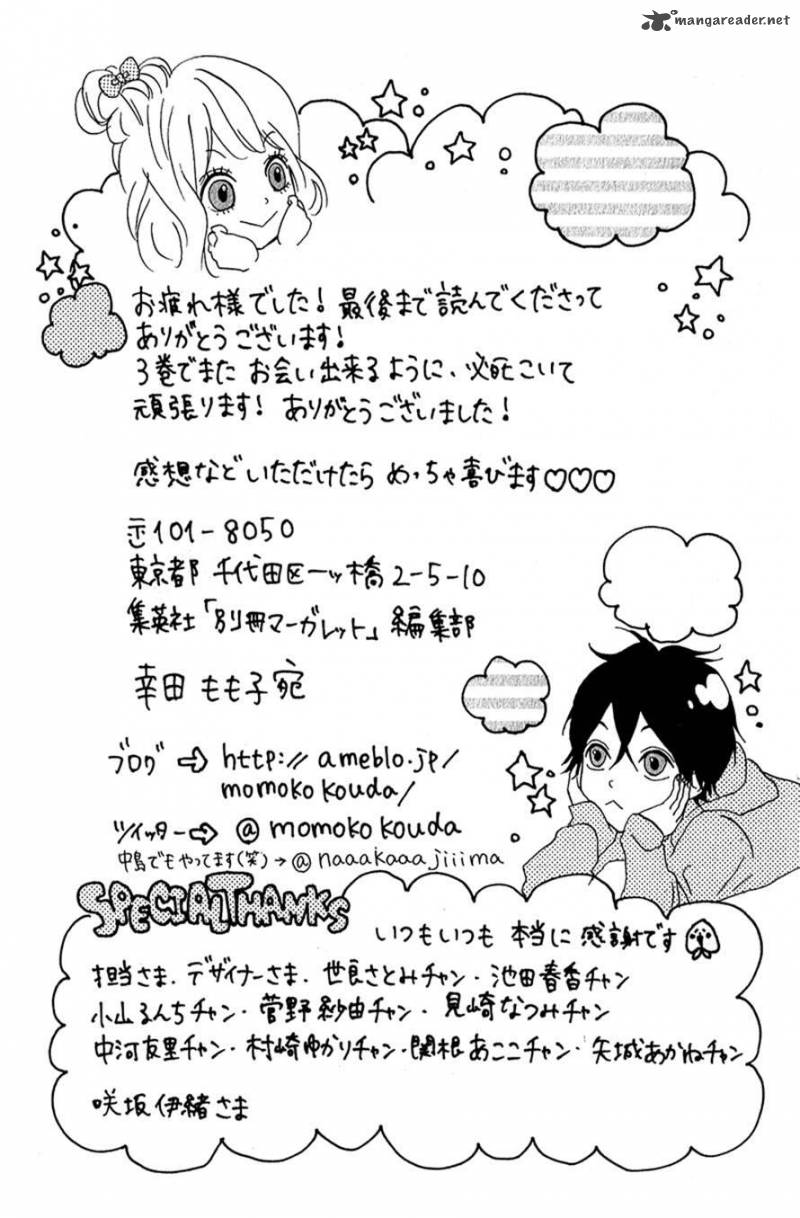 mangareader.net
お疲れ様でした！最後まで読んでくださって
ありがとうございます！
3巻でまた お会い出来るように、必死こいて
頑張ります！ ありがとうございました！
感想などいただけたら めっちゃ喜びます♡♡♡
〒101-8050
東京都 千代田区一ッ橋2-5-10
集英社「別冊マーガレット」編集部
幸田 もも子 宛
ブログ ⇨ http://ameblo.jp/
momokokouda/
ツイッター⇨ @momokokouda
中島でもやってます(笑)→@naaakaaajiiima
SPECIAL THANKS
いつもいつも 本当に 感謝です
担当さま．デザイナーさま．世良さとみチャン・池田春香チャン
小山るんちチャン・菅野紗由チャン・見崎なつみチャン
中河友里チャン・村崎ゆかりチャン・関根あここチャン・矢城あかねチャン
咲坂伊緒さま